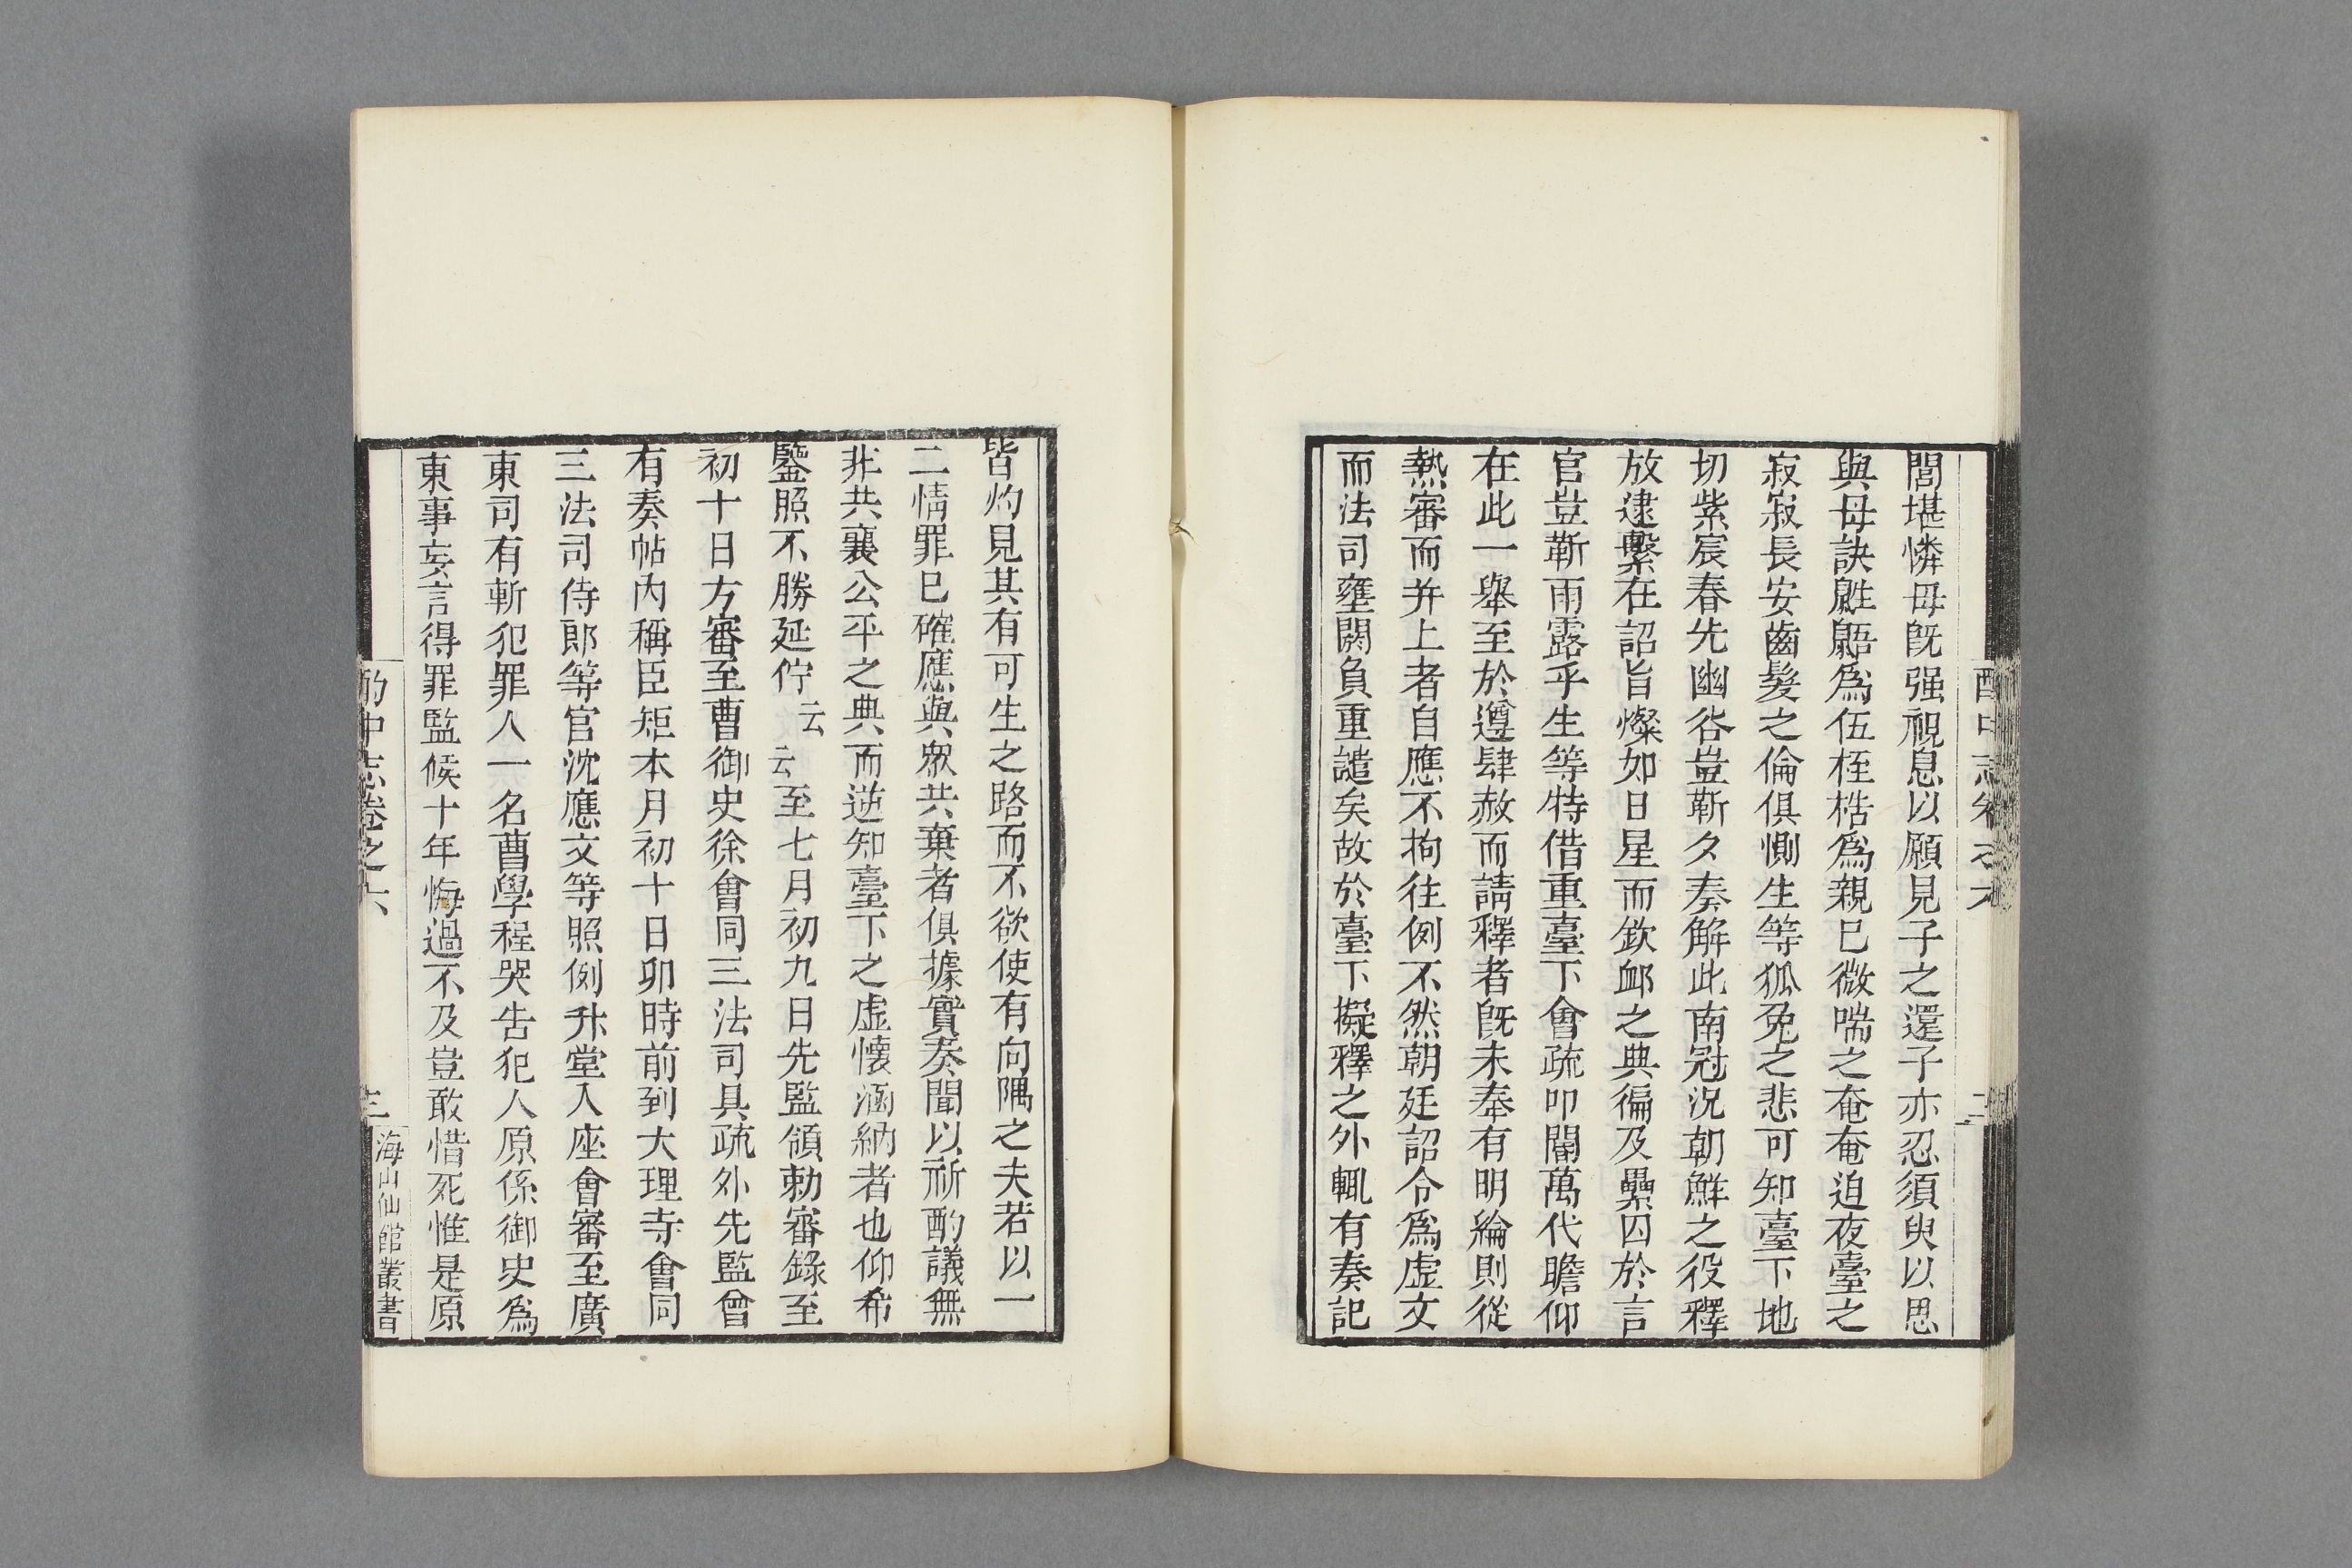 閭堪憐母旣强視息以願見子之還子亦忍須臾以思
與母訣鼪鼯爲伍桎梏爲親已微喘之奄奄迫夜臺之
寂寂長安齒髮之倫俱惻生等狐兔之悲可知臺下地
切紫宸春先幽谷豈靳久奏解此南冠況朝鮮之役釋
放逮繫在詔旨燦如日星而欽卹之典徧及纍囚於言
官豈靳雨露乎生等特借重臺下會疏叩閽萬代瞻仰
在此一舉至於遵肆赦而請釋者旣未奉有明綸則從
熱審而并上者自應不拘往例不然朝廷詔令爲虛文
而法司壅閼負重譴矣故於臺下擬釋之外輒有奏記
酌中志卷之六
二
皆灼見其有可生之路而不欲使有向隅之夫若以一
二情罪已確應與衆共棄者俱據實奏聞以祈酌議無
非共襄公平之典而逆知臺下之虛懷涵納者也仰希
鑒照不勝延佇云云至七月初九日先監領勅審錄至
初十日方審至曹御史徐會同三法司具疏外先監曾
有奏帖內稱臣矩本月初十日卯時前到大理寺會同
三法司侍郎等官沈應文等照例升堂入座會審至廣
東司有斬犯罪人一名曹學程哭告犯人原係御史爲
東事妄言得罪監候十年悔過不及豈敢惜死惟是原
酌中志卷之六
三
海山仙館叢書